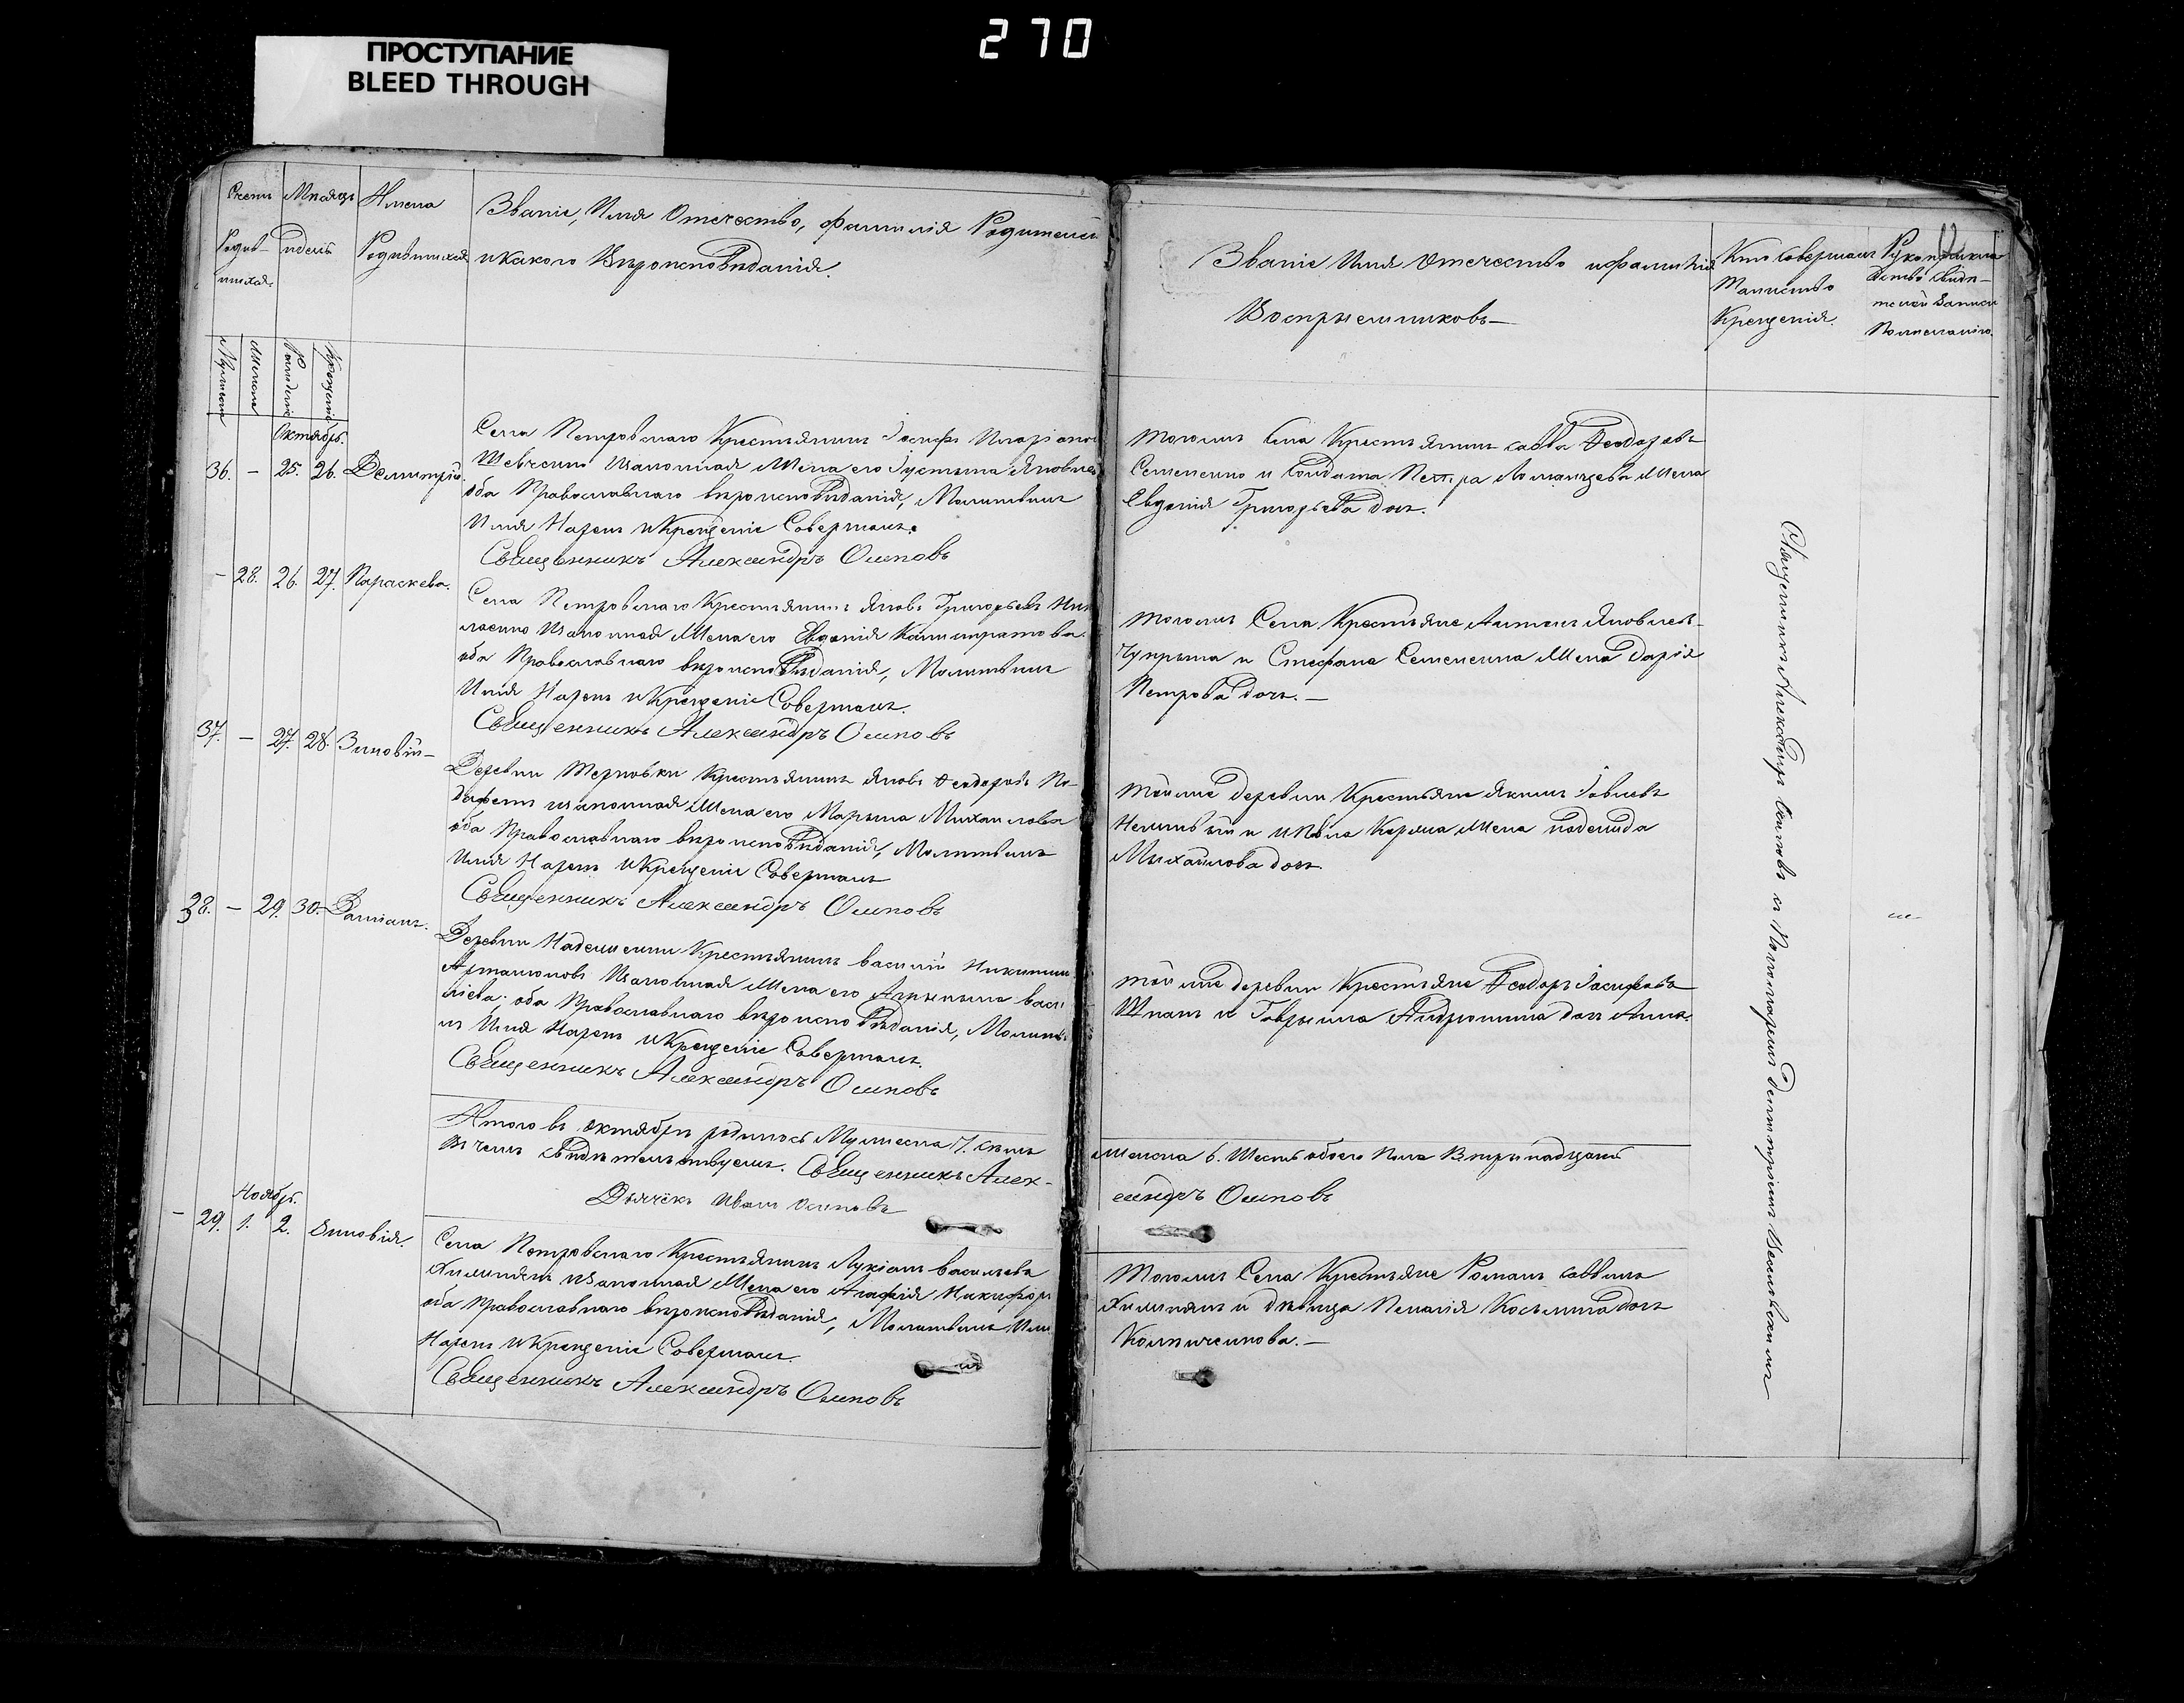 270
ПРОСТУПАНИЕ
BLEED THROUGH
Счетъ Мѣсяцъ Имена
Званіе, Имя Отечество, фамилія Родителей
Родив- и день Родившихся
и какого Вѣроисповѣданія.
шихся.
Рожденія Крещенія
Октябрь.
36. — 25. 26. Димитрій.
Села Петровскаго Крестьянинъ Іосифъ
Шевченко и законная Жена его Іустина Яковлев
оба Православнаго вѣроисповѣданія, Молитвилъ
Имя Нарекъ и Крещеніе Совершилъ.
Священникъ Александръ Осиповъ
— 28. 26. 27. Параскева.
Села Петровскаго Крестьянинъ Яковъ Григорьевъ
и законная Жена его Евдокія
оба Православнаго вѣроисповѣданія, Молитвилъ
Имя Нарекъ и Крещеніе Совершилъ.
Священникъ Александръ Осиповъ
37. — 27. 28. Зиновій —
Деревни Терновки Крестьянинъ Яковъ Ѳеодоровъ
и законная Жена его Марына Михайлова
оба Православнаго вѣроисповѣданія, Молитвилъ
Имя Нарекъ и Крещеніе Совершилъ
Священникъ Александръ Осиповъ
38. — 29. 30. Даміанъ.
Деревни Крестьянинъ Василій Никитинъ
и законная Жена его Васи
оба Православнаго вѣроисповѣданія, Молитви
лъ Имя Нарекъ и Крещеніе Совершилъ.
Священникъ Александръ Осиповъ
Итого въ октябрѣ родилось Мужеска 7. семь
въ чемъ свидѣтельствуемъ. Священникъ Алек-
Дьячёкъ Иванъ Осиповъ
Ноябрь.
— 29. 1. 2. Зиновія.
Села Петровскаго Крестьянинъ Лукіанъ Васильевъ
и законная Жена его Агафія Никифор
оба Православнаго вѣроисповѣданія, Молитвилъ Имя
Нарекъ и Крещеніе Совершилъ.
Священникъ Александръ Осиповъ
Званіе Имя Отечество и фамилія
Воспрыемниковъ —
Кто совершалъ
Таинство
Крещенія.
Рукоприкла
дство свидѣ-
телей записи
По желанію.
Тогожъ Села Крестьянинъ Савва Ѳеодоровъ
Семененко и Солдата Петра Жена
Евдокія Григорьева дочь.
Тогожъ Села Крестьяне Антонъ Яковлевъ
Чупрына и Стефана Семенени Жена Дарія
Петрова дочь. —
Той же деревни Крестьяне Якимъ Іовлевъ
Жена
Михайлова дочь.
Той же деревни Крестьяне Ѳеодоръ Іосифовъ
Шпакъ и Гаврыила дочь Анна.
Женска 6. Шесть обоего Пола Вътрынадцать
сандръ Осиповъ
Тогожъ Села Крестьяне Романъ Саввинъ
и дѣвица Пелагія Косьмина дочь
Священникъ Александръ Осиповъ съ Пономаремъ Димитріемъ